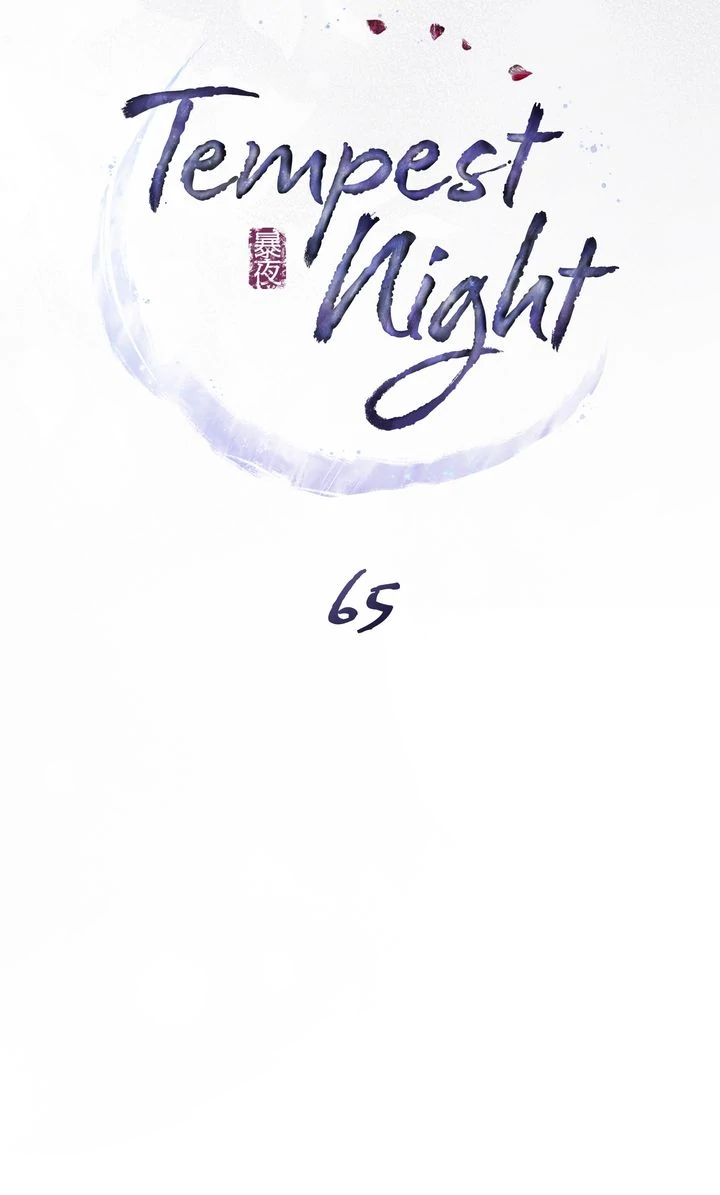 Tempest
Night
暴夜
65